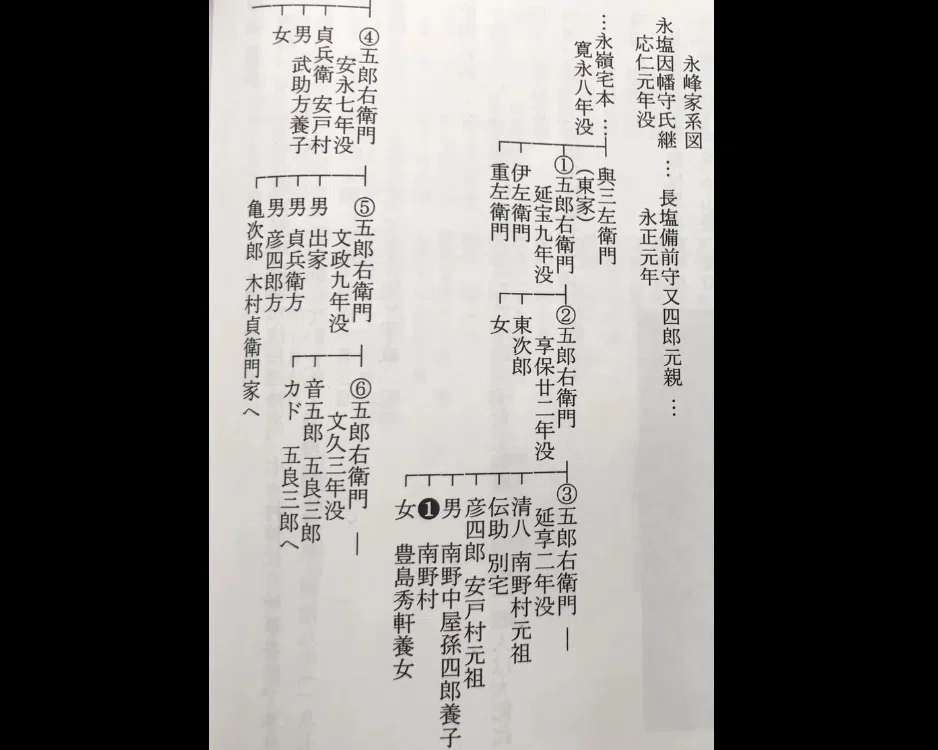 永峰家系図
永塩因幡守氏継 … 長塩備前守又四郎元親 …
応仁元年没
永正元年
…永嶺宅本 …
寛永八年没
與三左衛門
(東家)
①五郎右衛門
延宝九年没
伊左衛門
重左衛門
②五郎右衛門
享保廿二年没
東次郎
女
③五郎右衛門 ―
延享二年没
清八 南野村元祖
伝助 別宅
彦四郎 安戸村元祖
男 南野中屋孫四郎養子
❶ 南野村
女 豊島秀軒養女
④五郎右衛門
安永七年没
貞兵衛 安戸村
男 武助方養子
女
⑤五郎右衛門
文政九年没
男 出家
男 貞兵衛方
男 彦四郎方
亀次郎 木村貞衛門家へ
⑥五郎右衛門 ―
文久三年没
音五郎 五良三郎
カド 五良三郎へ